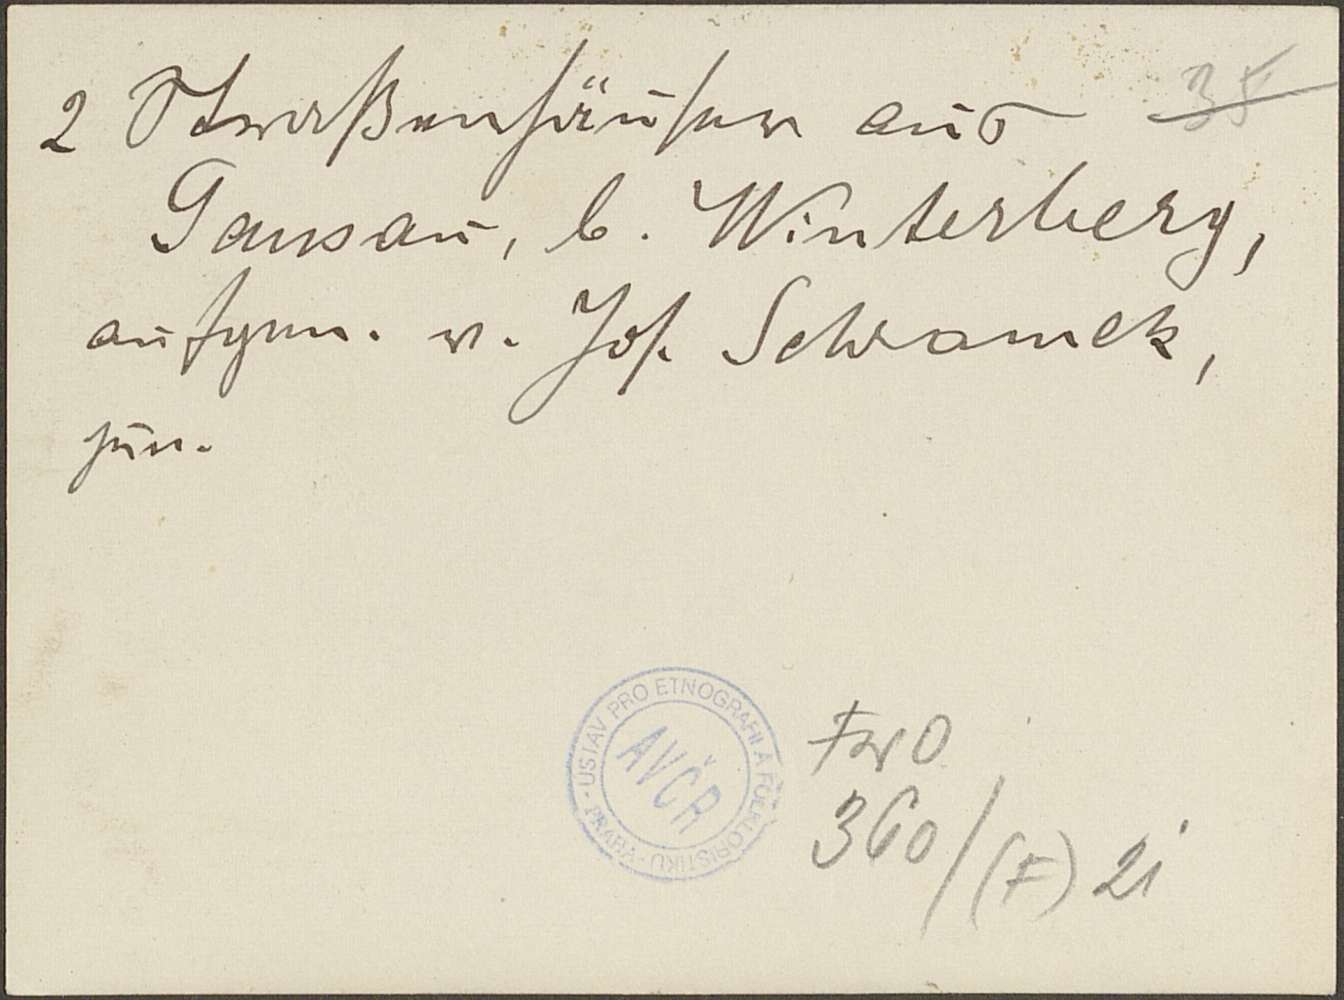 2 Straßenhäuser aus 35
Gansau, b. Winterberg,
aufgen. v. Jos. Schramek,
jun.
ÚSTAV PRO ETNOGRAFII A FOLKLORISTIKU · PRAHA ·
AVČR
FWO
360/(F) 21